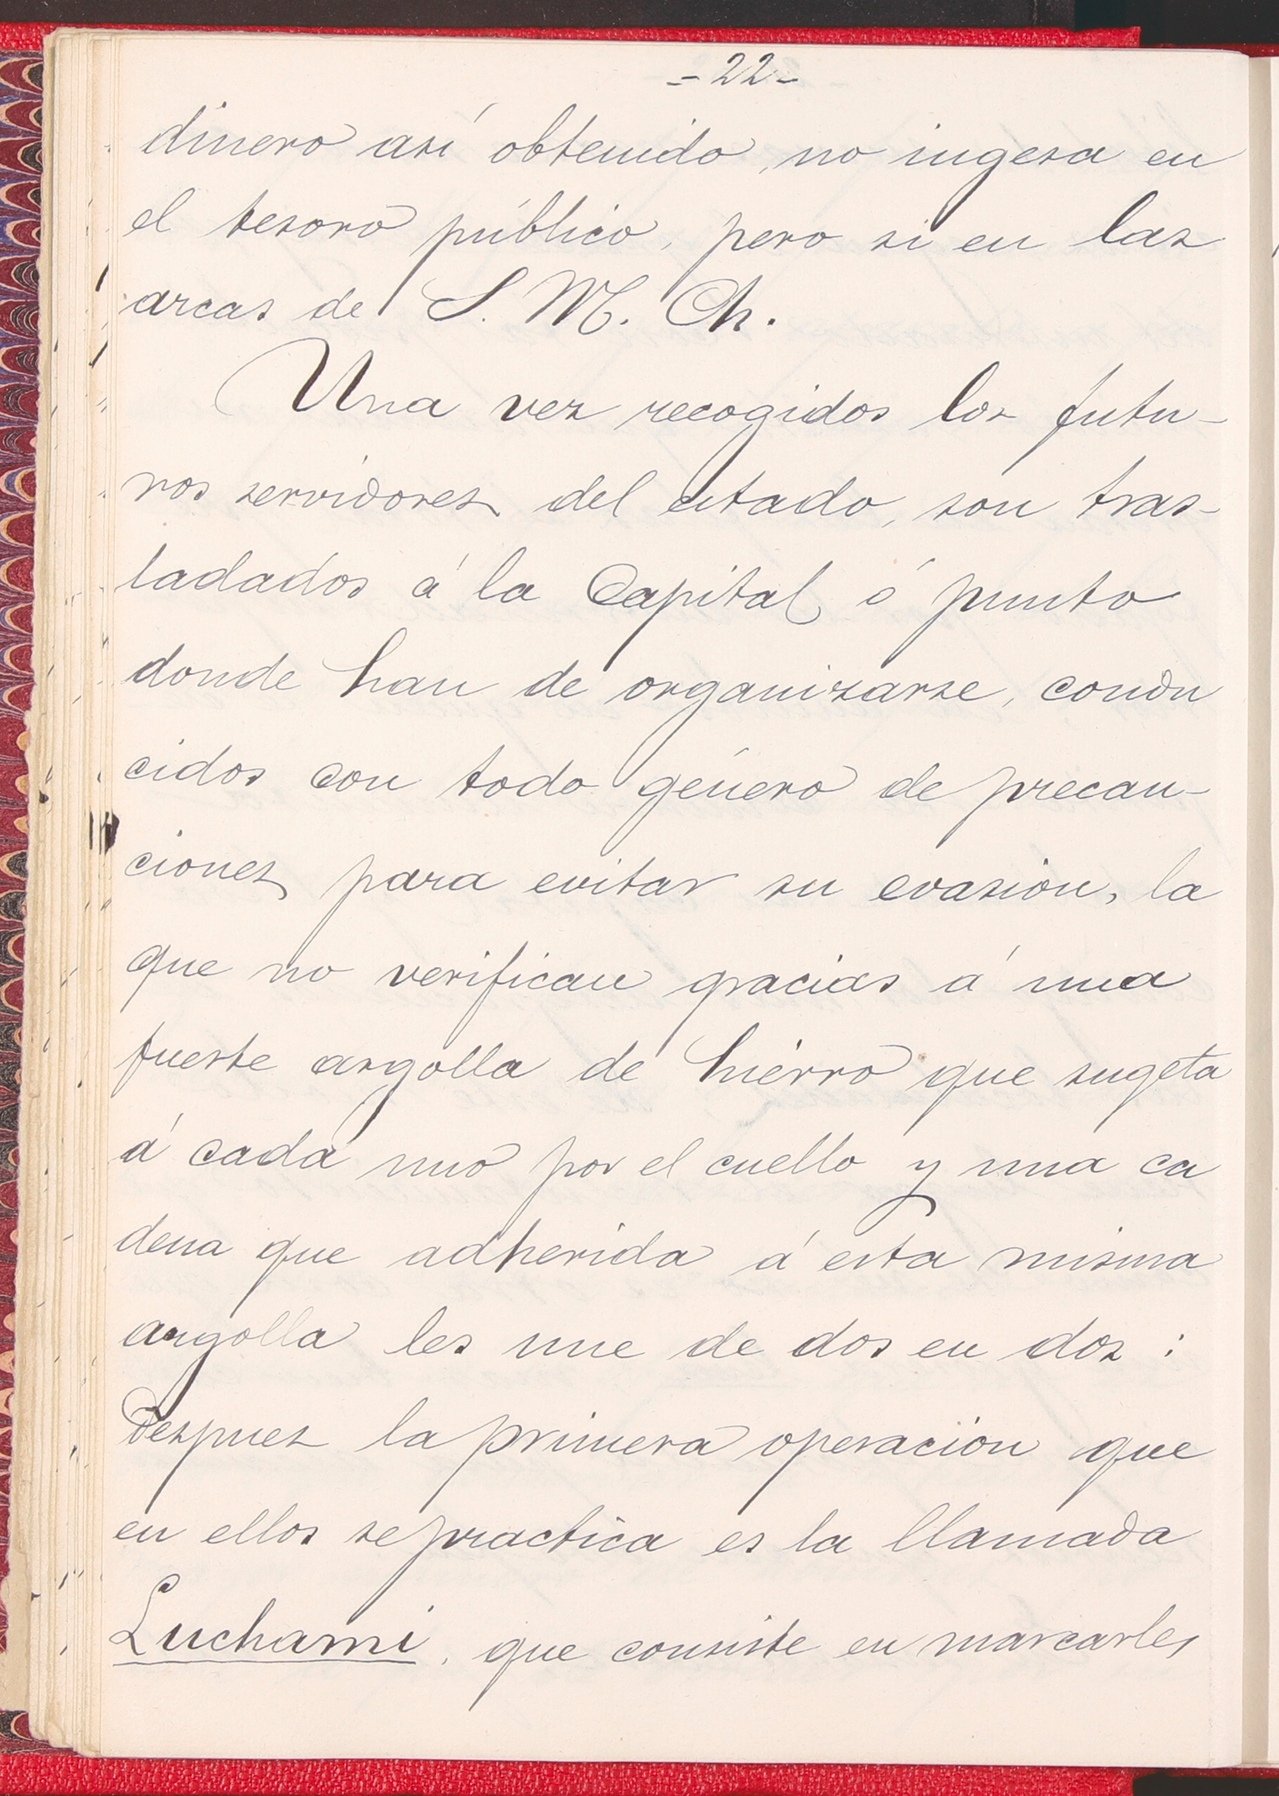 - 22 -
dinero así obtenido, no ingresa en
el tesoro público, pero si en las
arcas de S. M. Ch.
Una vez recogidos los futu-
ros servidores del estado, son tras-
ladados á la Capital ó punto
donde han de organizarse, condu
cidos con todo género de precau-
ciones para evitar su evasión, la
que no verifican gracias á una
fuerte argolla de hierro que sugeta
á cada uno por el cuello y una ca
dena que adherida á esta misma
argolla les une de dos en dos:
Despues la primera operación que
en ellos se practica es la llamada
Luchami, que consiste en marcarles